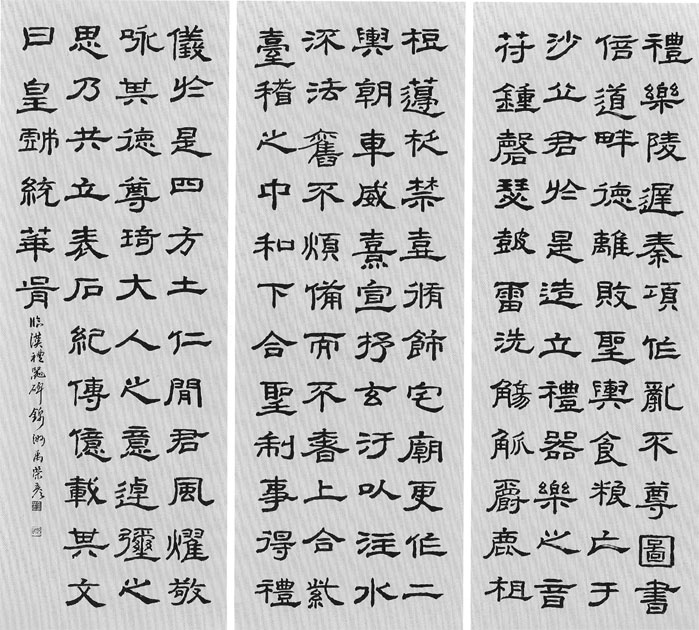 禮樂陵遲秦項作亂不尊圖書
倍道畔德離敗聖輿食糧亡于
沙丘君於是造立禮器樂之音
苻鍾磬瑟鼓雷洗觴觚爵鹿柤
梪籩柉禁壺脩飾宅廟更作二
輿朝車威熹宣抒玄汙以注水
深法舊不煩備而不奢上合紫
臺稽之中和下合聖制事得禮
儀於是四方土仁聞君風燿敬
咏其德尊琦大人之意逴彌之
思乃共立表石紀傳億載其文
曰皇戲統華胥
臨漢禮器碑